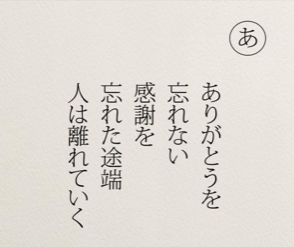 あ
ありがとうを
忘れない
感謝を
忘れた途端
人は離れていく